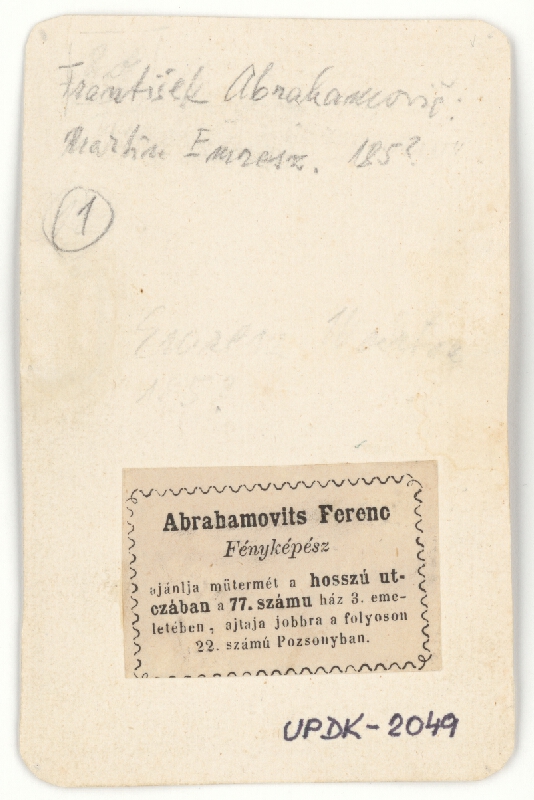 František Abrahamovič.
Martin Emresz. 185?
1
Abrahamovits Ferenc
Fényképész
ajánlja mütermét a hosszú ut-
czában a 77. számu ház 3. eme-
letében, ajtaja jobbra a folyoson
22. számú Pozsonyban.
UPDK-2049